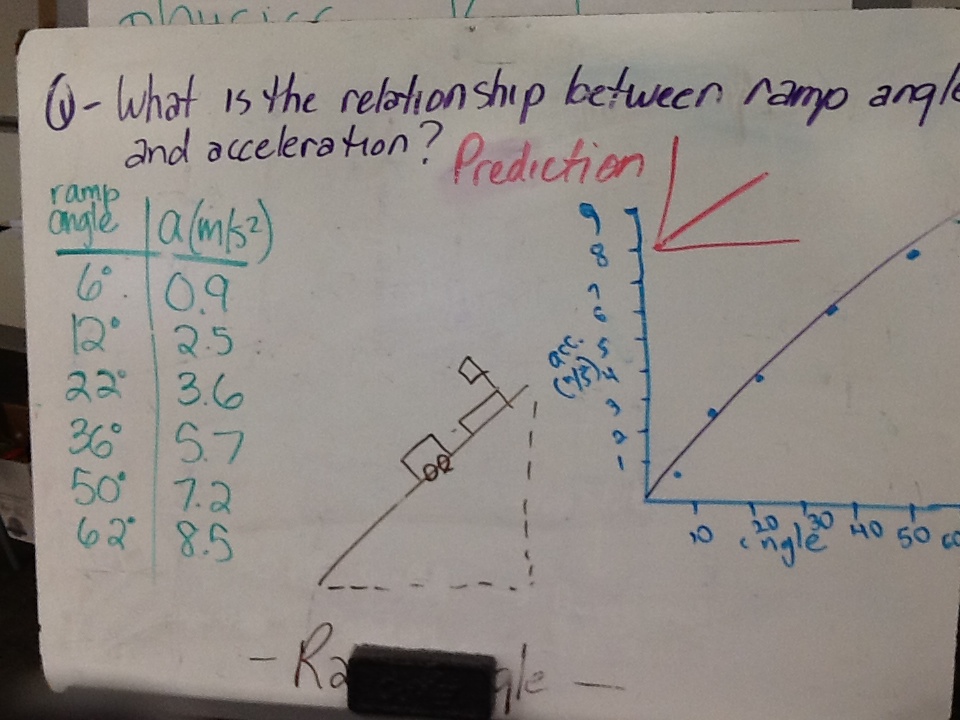 Q - What is the relationship between ramp angle
and acceleration?
Prediction
ramp
angle
a (m/s²)
6° 0.9
12° 2.5
22° 3.6
36° 5.7
50° 7.2
62° 8.5
9
8
7
6
5
4
3
2
1
acc.
10 20 30 40 50 60
angle